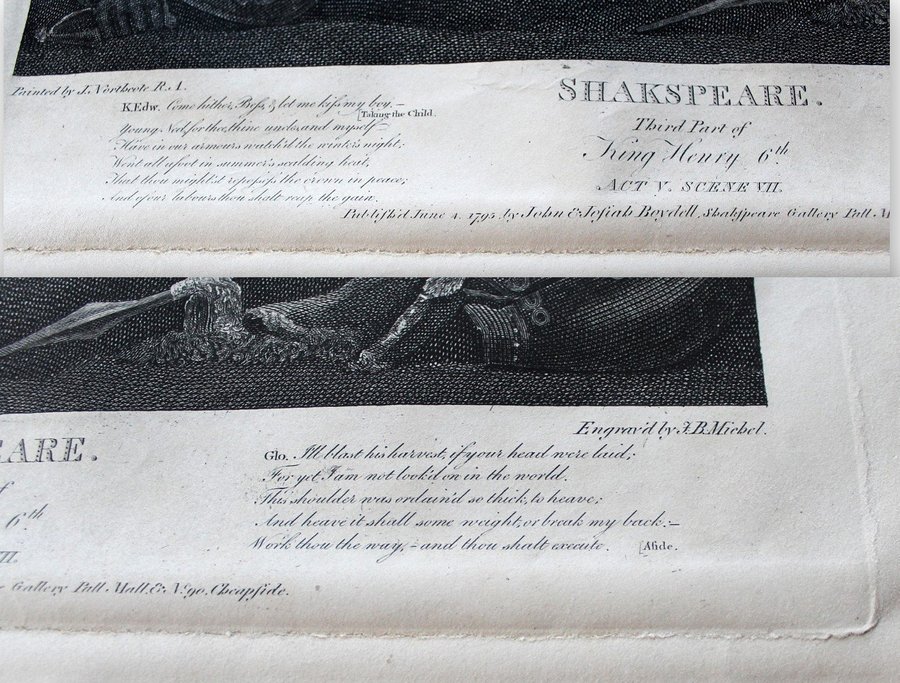 Painted by J. Northcote R.A.
K.Edw. Come hither, Beſs, & let me kiſs my boy.—
[Taking the Child.
Young Ned, for thee, thine uncles, and myself
Have in our armours watch'd the winter's night;
Went all afoot in summer's scalding heat,
That thou might'st repoſseſs the crown in peace;
And of our labours thou shalt reap the gain.
SHAKSPEARE.
Third Part of
King Henry 6th.
ACT V. SCENE VII.
Publiſh'd June 4, 1795, by John & Joſiah Boydell, Shakſpeare Gallery Pall M
EARE.
f
6th
II.
Gallery Pall Mall, & No. 90, Cheapſide.
Engrav'd by J.B. Michel.
Glo. I'll blast his harvest, if your head were laid;
For yet I am not look'd on in the world.
This shoulder was ordain'd so thick, to heave;
And heave it shall some weight, or break my back:—
Work thou the way,—and thou shalt execute. [Aſide.